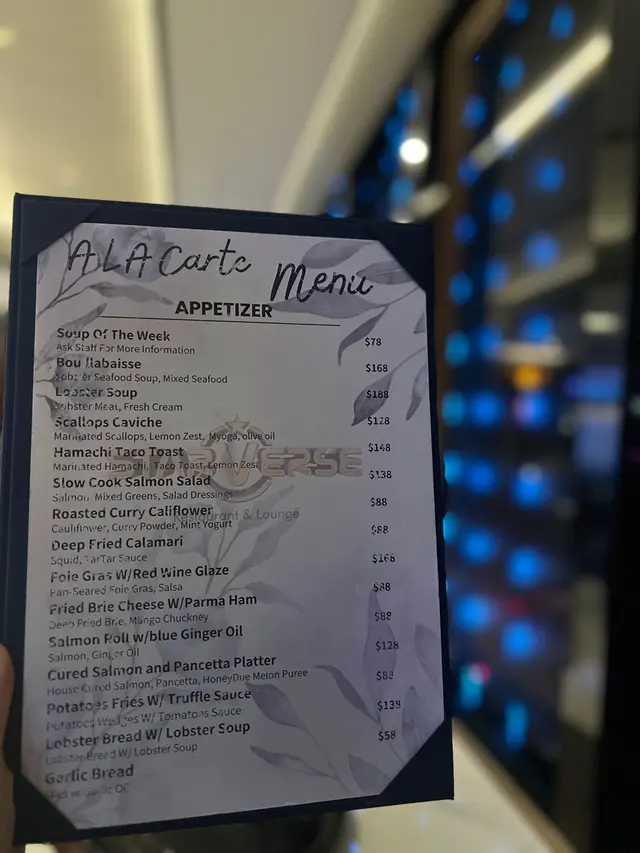 A LA Carte Menu
APPETIZER
Soup Of The Week $78
Ask Staff For More Information
Bouillabaisse $168
Lobster Seafood Soup, Mixed Seafood
Lobster Soup $188
Lobster Meat, Fresh Cream
Scallops Caviche $128
Marinated Scallops, Lemon Zest, Myoga, olive oil
Hamachi Taco Toast $148
Marinated Hamachi, Taco Toast, Lemon Zest
VERSE
Slow Cook Salmon Salad $138
Salmon, Mixed Greens, Salad Dressings
Roasted Curry Califlower $88
Restaurant & Lounge
Cauliflower, Curry Powder, Mint Yogurt
Deep Fried Calamari $88
Squid, TarTar Sauce
Foie Gras W/Red Wine Glaze $168
Pan-Seared Foie Gras, Salsa
Fried Brie Cheese W/Parma Ham $88
Deep Fried Brie, Mango Chuckney
Salmon Roll w/blue Ginger Oil $88
Salmon, Ginger Oil
Cured Salmon and Pancetta Platter $128
House Cured Salmon, Pancetta, HoneyDue Melon Puree
Potatoes Fries W/ Truffle Sauce
Potatoes Wedges W/ Tomatoes Sauce
Lobster Bread W/ Lobster Soup $138
Lobster Bread W/ Lobster Soup
Garlic Bread $58